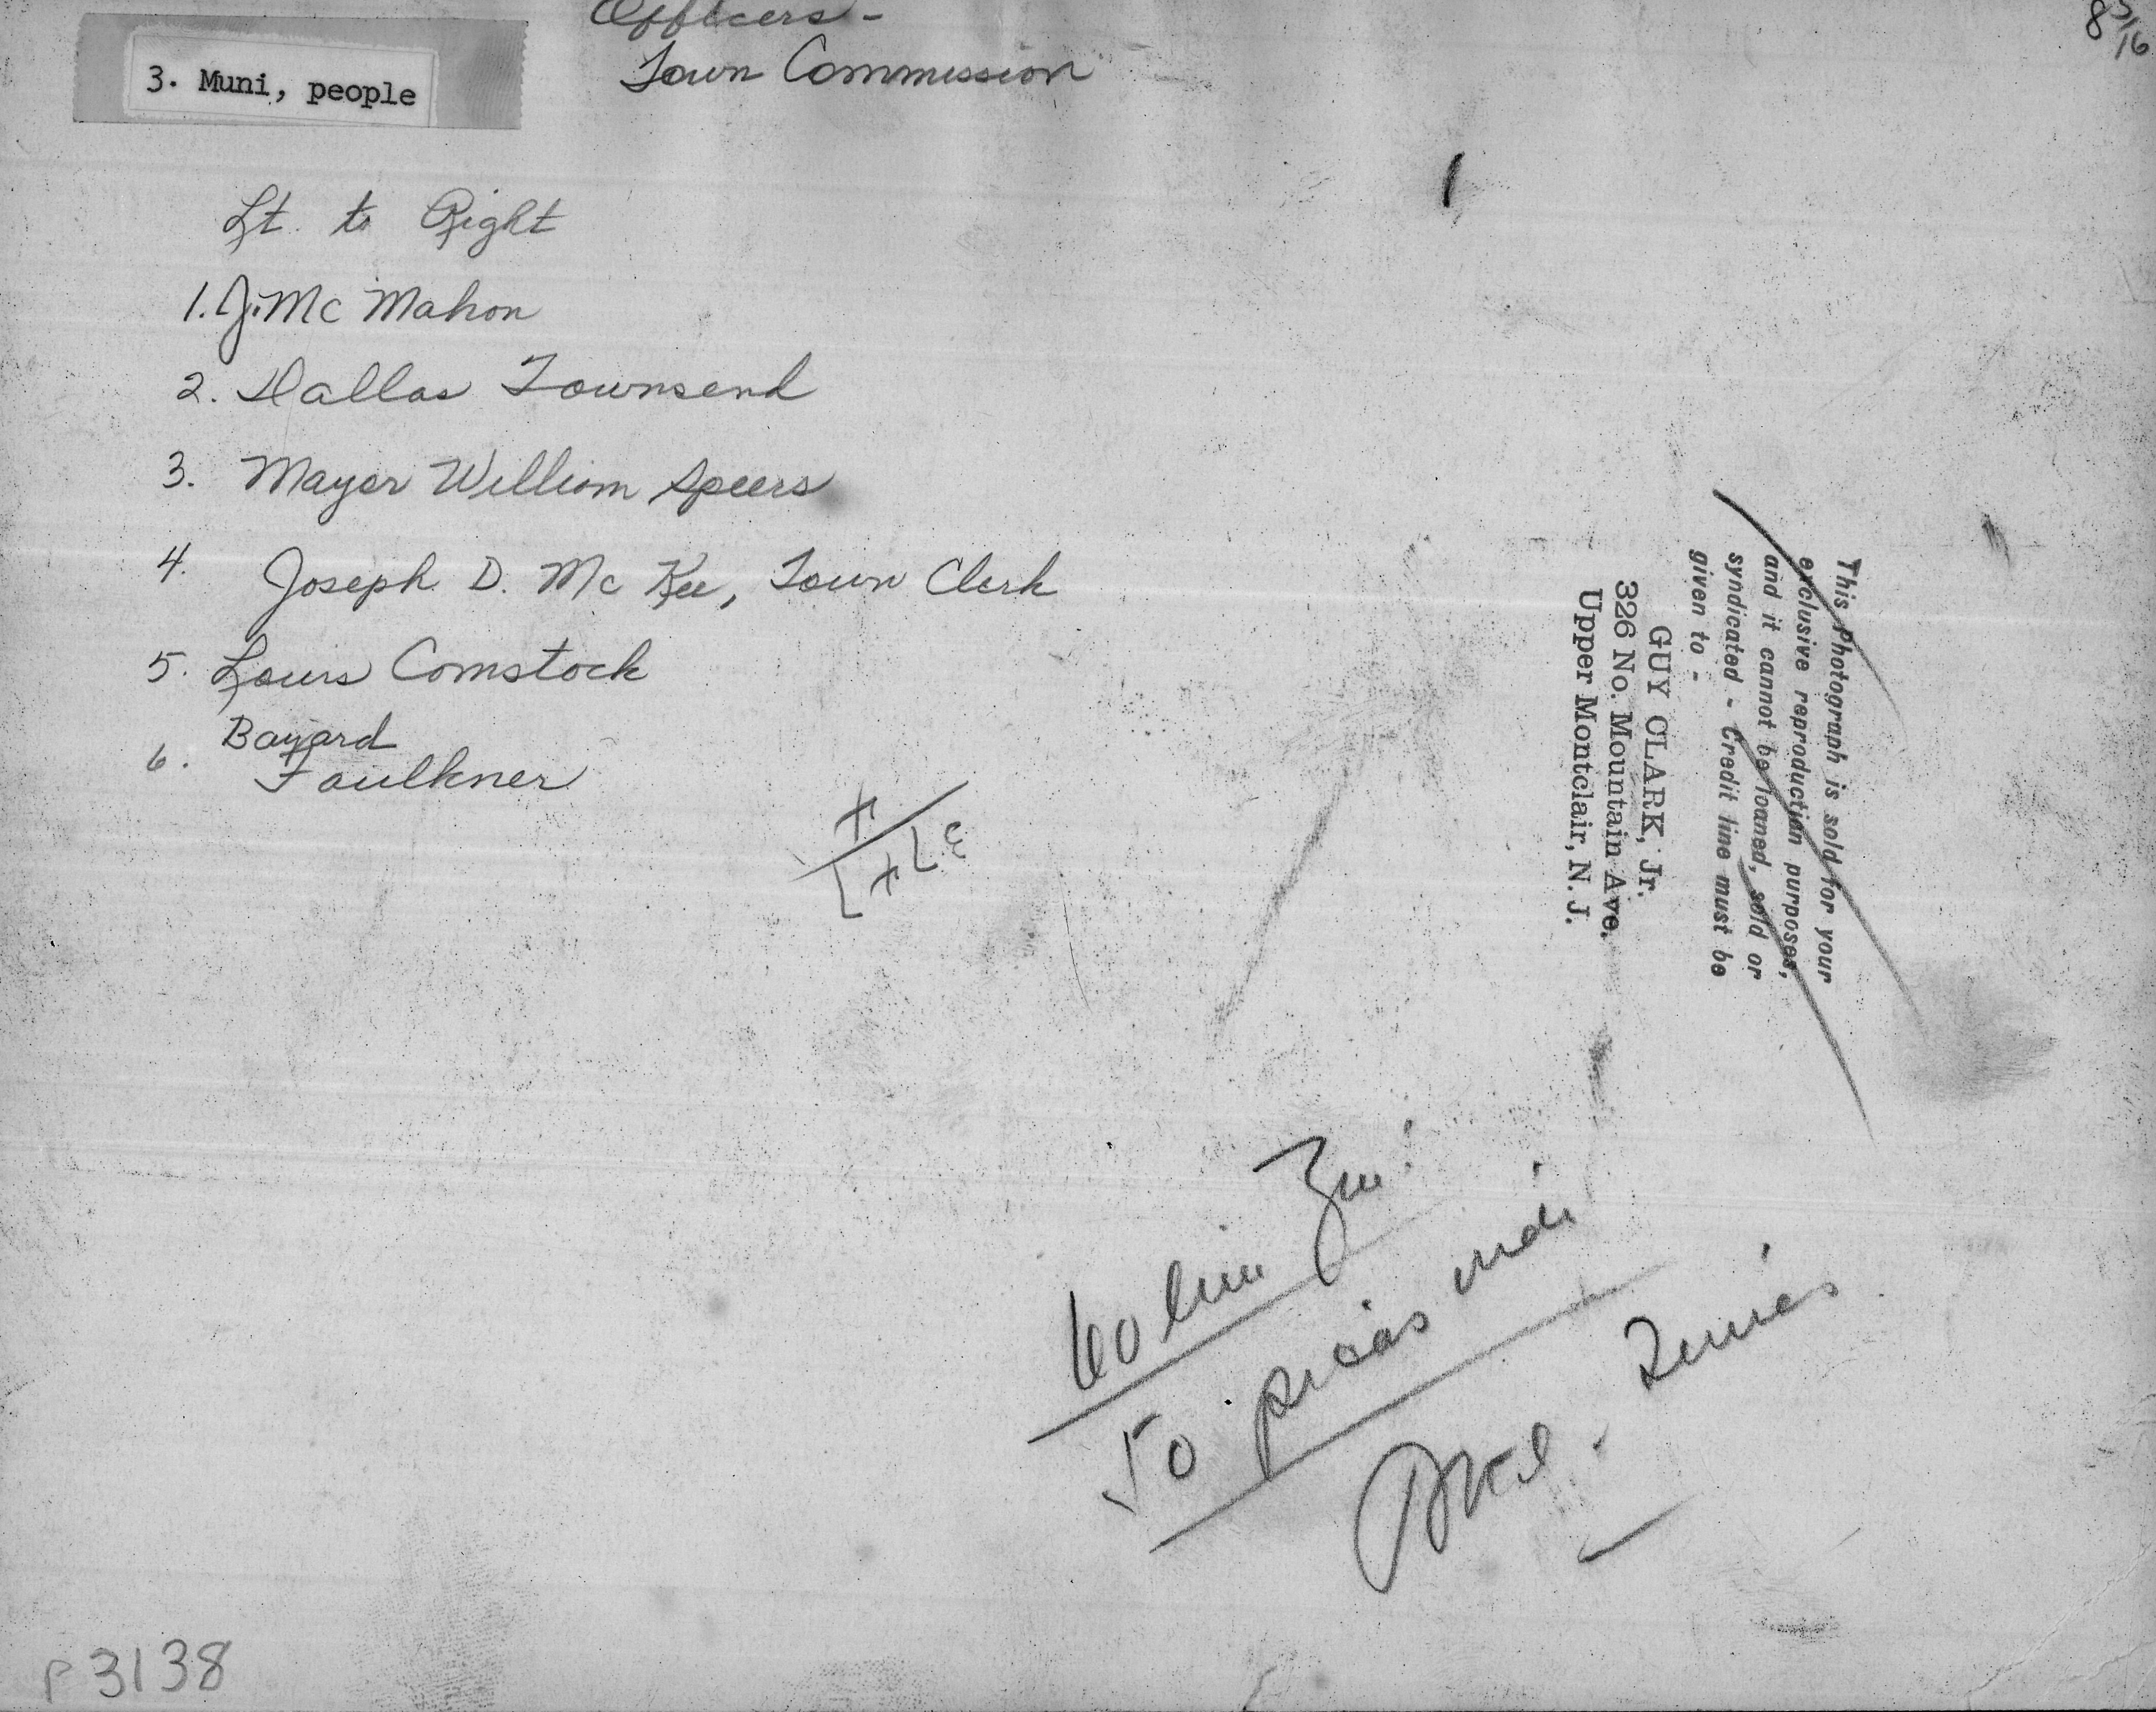 Officers -
Town Commission
8 5/16
3. Muni, people
Lt. to Right
1. J. Mc Mahon
2. Dallas Townsend
3. Mayor William Speers
4. Joseph D. Mc Kee, Town Clerk
5. Louis Comstock
6. Bayard
Faulkner
This Photograph is sold for your
exclusive reproduction purposes,
and it cannot be loaned, sold or
syndicated - Credit line must be
given to -
GUY CLARK, Jr.
326 No. Mountain Ave.
Upper Montclair, N. J.
60
50
Times
P3138